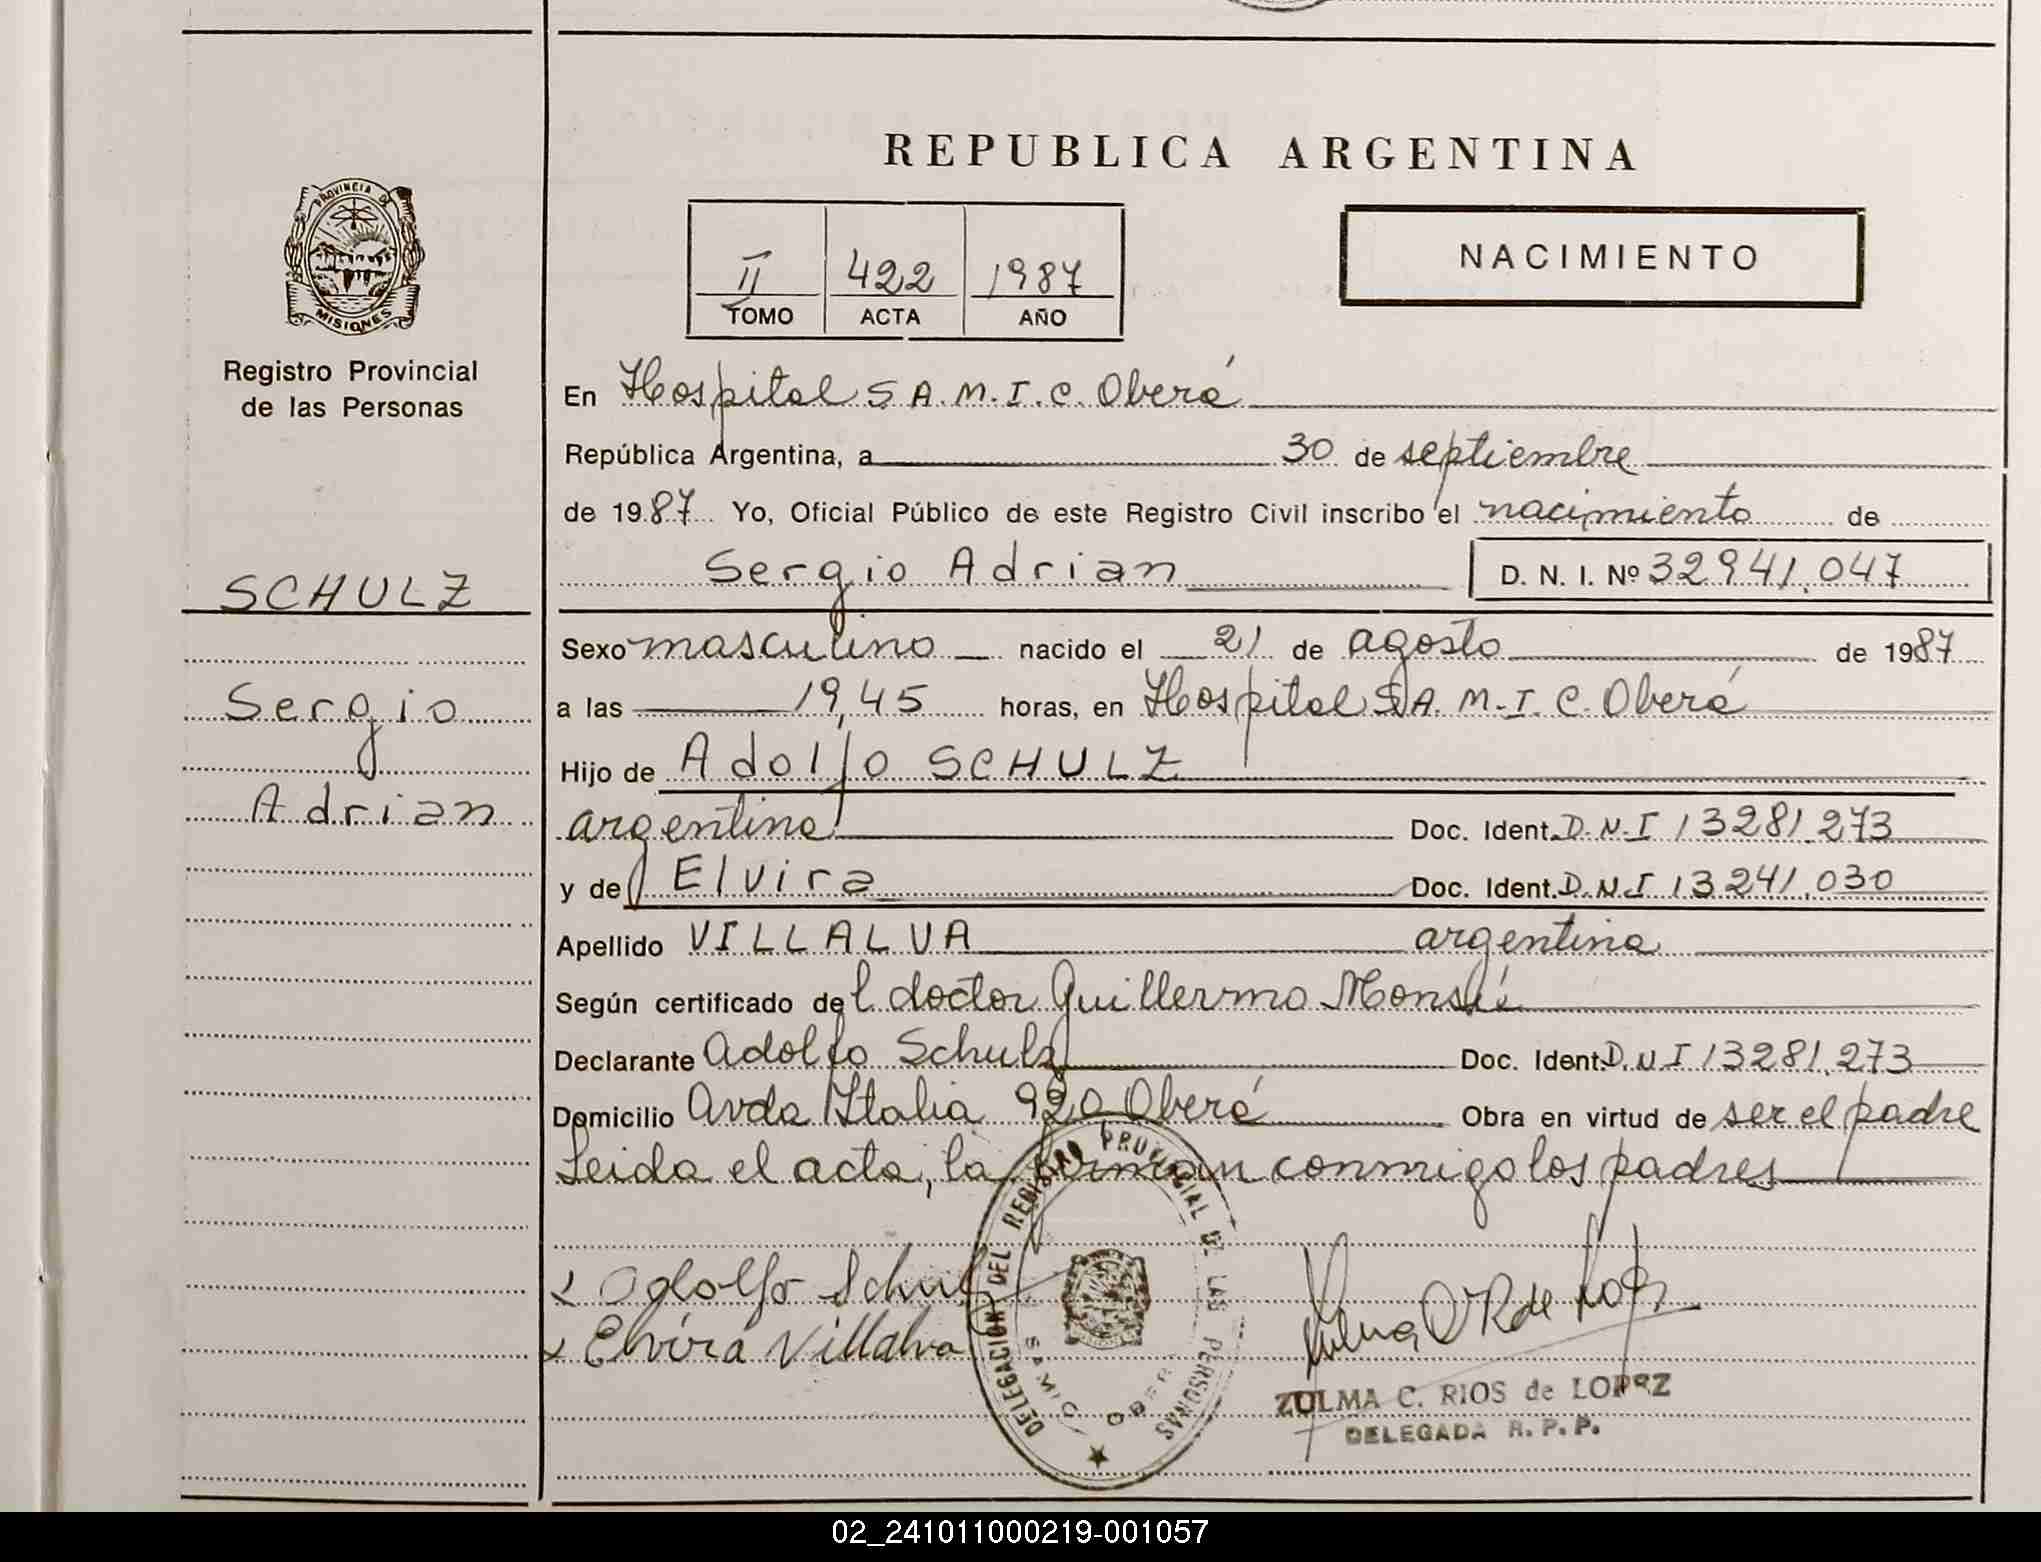 REPUBLICA ARGENTINA
PROVINCIA DE
MISIONES
Registro Provincial
de las Personas
II 422 1987
TOMO ACTA AÑO
NACIMIENTO
En Hospital S.A.M.I.C. Oberá
República Argentina, a 30 de septiembre
de 1987 Yo, Oficial Público de este Registro Civil inscribo el nacimiento de
Sergio Adrian D. N. I. Nº 32941.047
SCHULZ
Sergio
Adrian
Sexo masculino nacido el 21 de agosto de 1987
a las 19,45 horas, en Hospital S.A.M.I.C. Oberá
Hijo de Adolfo SCHULZ
argentino Doc. Ident. D.N.I 13281.273
y de Elvira Doc. Ident. D.N.I 13241.030
Apellido VILLALVA argentina
Según certificado del doctor Guillermo
Declarante Adolfo Schulz Doc. Ident. D.N.I 13281.273
Domicilio Avda Italia 920 Oberá Obra en virtud de ser el padre
Leida el acta, la firman conmigo los padres
x Adolfo Schulz
x Elvira Villalva
DELEGACION DEL REGISTRO PROVINCIAL DE LAS PERSONAS
SAMIC OBERA
ZULMA C. RIOS de LOPEZ
DELEGADA R. P. P.
02_241011000219-001057